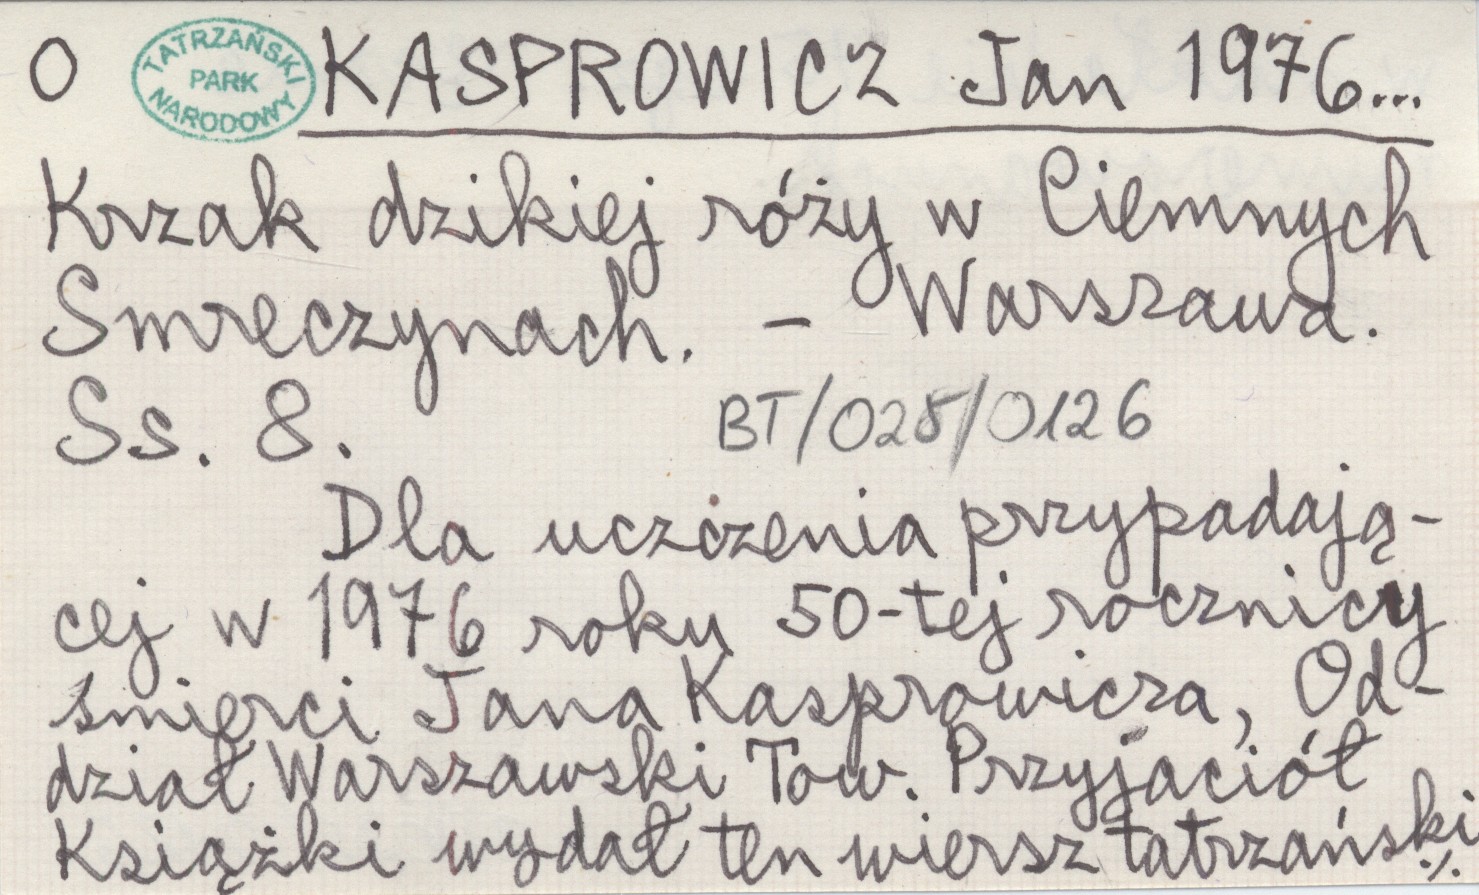 O TATRZAŃSKI PARK NARODOWY KASPROWICZ Jan 1976...
Krzak dzikiej róży w Ciemnych
Smreczynach. – Warszawa.
Ss. 8. BT/028/0126
Dla uczczenia przypadają-
cej w 1976 roku 50-tej rocznicy
śmierci Jana Kasprowicza, Od-
dział Warszawski Tow. Przyjaciół
Książki wydał ten wiersz tatrzański